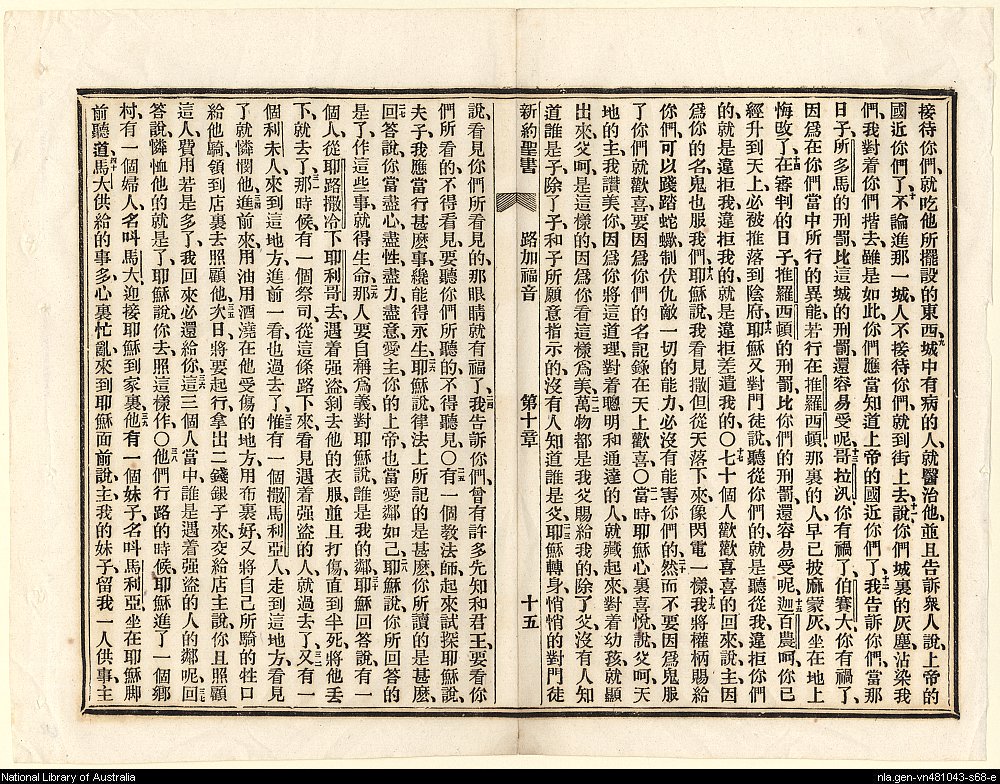 接待你們、就吃他所擺設的東西、九城中有病的人、就醫治他、並且告訴衆人說、上帝的
國近你們了、十不論進那一城、人不接待你們、就到街上去說、十一你們城裏的灰塵沾染我
們、我對着你們揩去、雖是如此、你們應當知道上帝的國近你們了、十二我告訴你們、當那
日子所多馬的刑罰、比這城的刑罰還容易受呢、十三哥拉汎、你有禍了、伯賽大、你有禍了、
因爲在你們當中所行的異能、若行在推羅西頓、那裏的人早已披麻蒙灰、坐在地上
悔改了、十四在審判的日子、推羅西頓的刑罰、比你們的刑罰還容易受呢、十五迦百農呵、你已
經升到天上、必被推落到陰府、十六耶穌又對門徒說、聽從你們的、就是聽從我、違拒你們
的、就是違拒我、違拒我的、就是違拒差遣我的、〇十七七十個人歡歡喜喜的回來說、主、因
爲你的名、鬼也服我們、十八耶穌說、我看見撒但從天落下來、像閃電一樣、十九我將權柄賜給
你們、可以踐踏蛇蠍、制伏仇敵一切的能力、必沒有能害你們的、二十然而不要因爲鬼服
了你們就歡喜、要因爲你們的名記錄在天上歡喜、〇二一當時耶穌心裏喜悅、說、父呵、天
地的主、我讚美你、因爲你將這道理、對着聰明和通達的人、就藏起來、對着幼孩、就顯
出來、父呵、是這樣的、因爲你看這樣爲美、二二萬物都是我父賜給我的、除了父、沒有人知
道誰是子、除了子、和子所願意指示的、沒有人知道誰是父、二三耶穌轉身、悄悄的對門徒
新約聖書 路加福音 第十章 十五
說、看見你們所看見的、那眼睛就有福了、二四我告訴你們、曾有許多先知和君王、要看你
們所看的、不得看見、要聽你們所聽的、不得聽見、〇二五有一個教法師起來、試探耶穌說、
夫子、我應當行甚麼事、纔能得永生、二六耶穌說、律法上所記的是甚麼、你所讀的是甚麼、
二七回答說、你當盡心、盡性、盡力、盡意、愛主你的上帝、也當愛鄰如己、二八耶穌說、你所回答的
是了、你作這些事、就得生命、二九那人要自稱爲義、對耶穌說、誰是我的鄰、三十耶穌回答說、有一
個人、從耶路撒冷下耶利哥去、遇着强盜、剝去他的衣服、並且打傷、直到半死、將他丟
下、就去了、三一那時候、有一個祭司、從這條路下來、看見遇着强盜的人、就過去了、三二又有一
個利未人、來到這地方、進前一看、也過去了、三三惟有一個撒馬利亞人、走到這地方、看見
了、就憐憫他、三四進前來、用油用酒澆在他受傷的地方、用布裹好、又將自己所騎的牲口、
給他騎、領到店裏去照顧他、三五次日、將要起行、拿出二錢銀子來、交給店主說、你且照顧
這人、費用若是多了、我回來必還給你、三六這三個人當中、誰是遇着强盜的人的鄰呢、三七回
答說、憐恤他的就是了、耶穌說、你去照這樣作、〇三八他們行路的時候、耶穌進了一個鄉
村、有一個婦人、名叫馬大、迎接耶穌到家裏、三九他有一個妹子、名叫馬利亞、坐在耶穌脚
前聽道、四十馬大供給的事多、心裏忙亂、來到耶穌面前說、主、我的妹子、留我一人供事、主
National Library of Australia
nla.gen-vn481043-s68-e